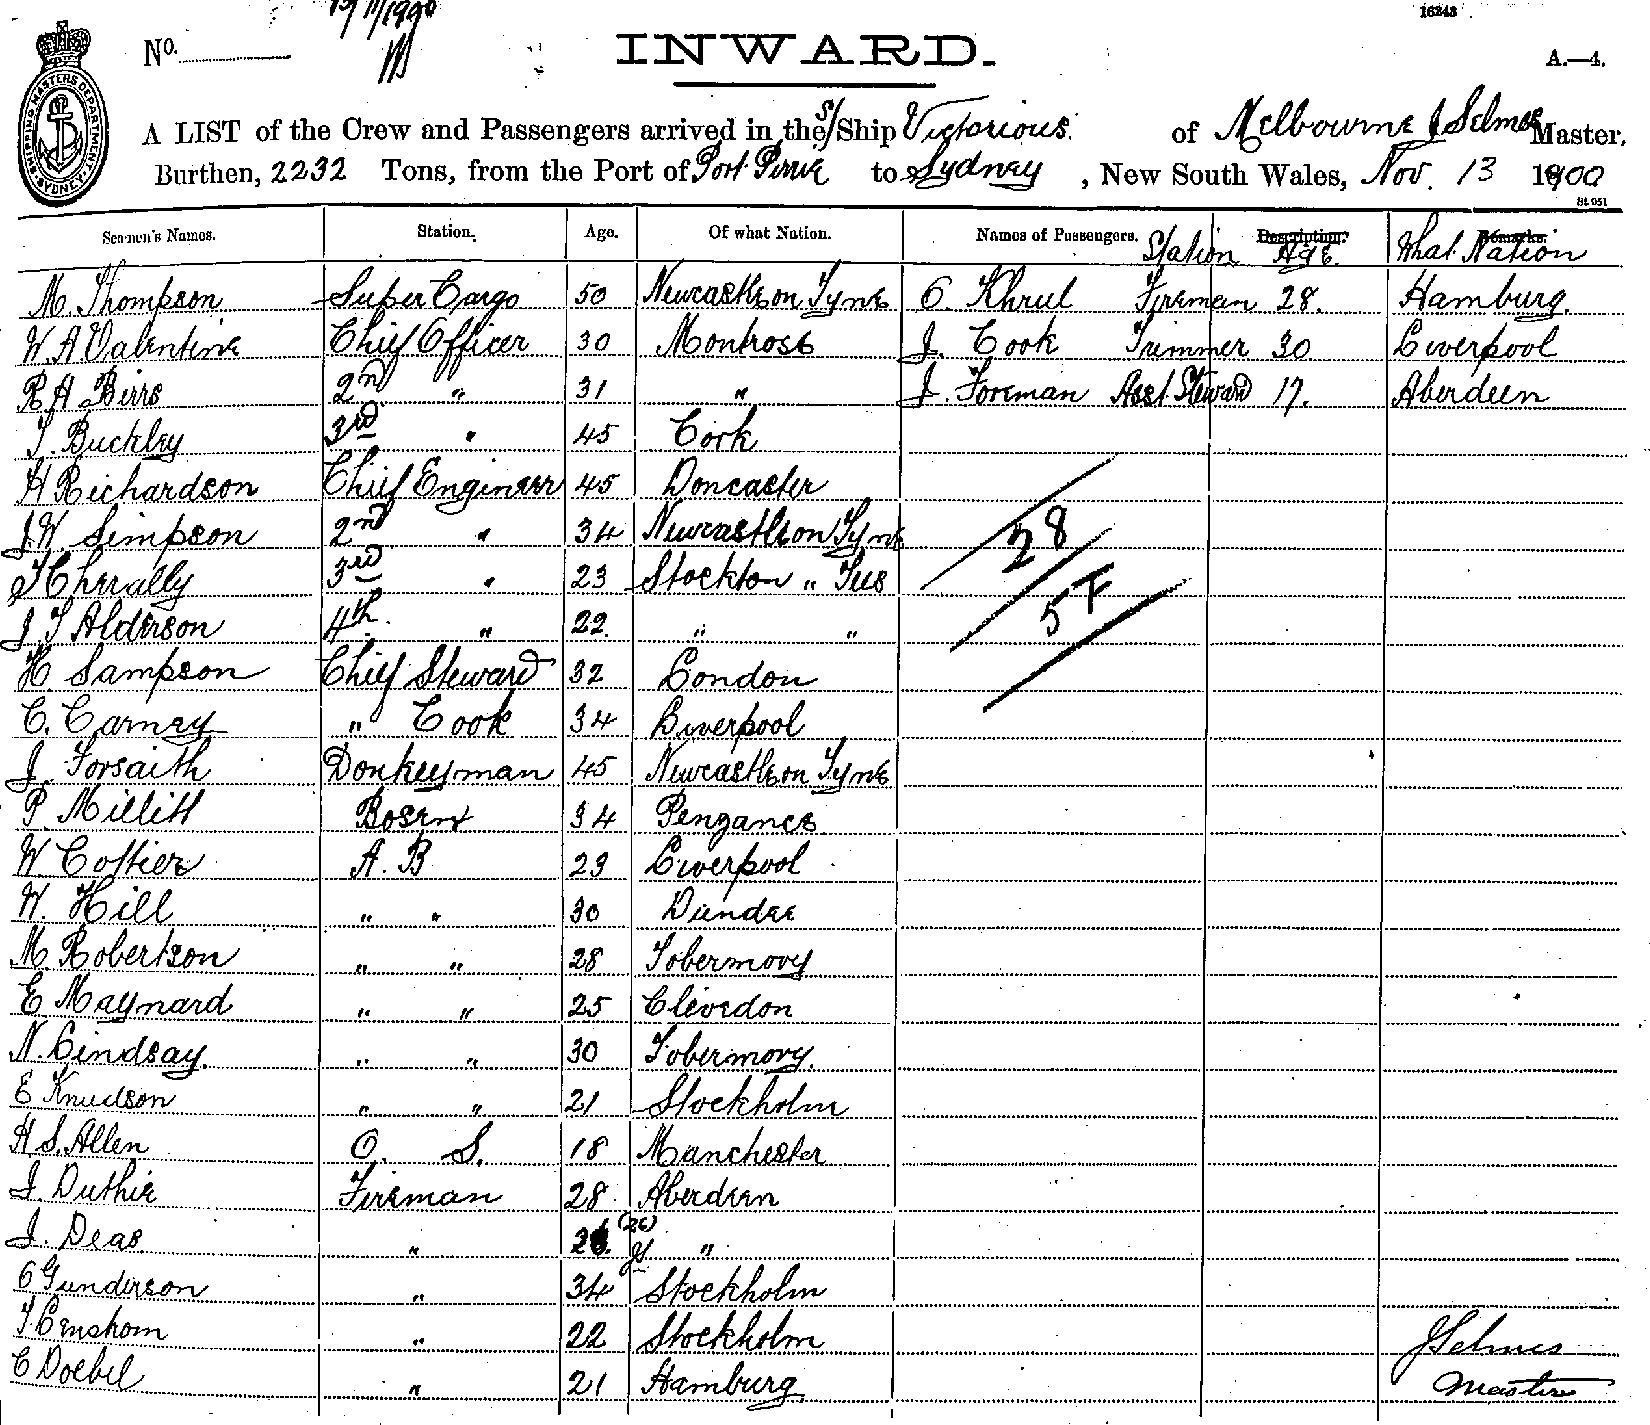 13/11/1900
16243
No.
INWARD.
A.—4.
SHIPPING MASTERS DEPARTMENT SYDNEY
A LIST of the Crew and Passengers arrived in the S/Ship Victorious of Melbourne J Selmes Master.
Burthen, 2232 Tons, from the Port of Port Pirie to Sydney, New South Wales, Nov. 13 1900
St 051
Seamen's Names. Station. Age. Of what Nation. Names of Passengers. Station Description. Age. Remarks. What Nation
M. Thompson Super Cargo 50 Newcastle on Tyne C. Khrul Fireman 28. Hamburg.
W A Valentine Chief Officer 30 Montrose J. Cook Trimmer 30 Liverpool
R A Birrs 2nd " 31 " J. Foreman Asst. Steward 17. Aberdeen
T. Buckley 3rd " 45 Cork
H Richardson Chief Engineer 45 Doncaster
J W Simpson 2nd " 34 Newcastle on Tyne
28
3rd " 23 Stockton " Tees
5 F
J. T Alderson 4th. " 22. " "
H Sampson Chief Steward 32 London
C. Carney " Cook 34 Liverpool
J. Forsaith Donkeyman 45 Newcastle on Tyne
P. Millitt Bosen 34 Penzance
W Cottier A. B 23 Liverpool
W. Hill " " 30 Dundee
M. Robertson " " 28 Tobermovy
E Maynard " " 25 Clevedon
N. Lindsay. " " 30 Tobermovy.
E Knudson " " 21 Stockholm
H S. Allen O. S. 18 Manchester
J. Duthie Fireman 28 Aberdeen
J. Deas " 26. (26) "
C Gunderson " 34 Stockholm
" 22 Stockholm
J Selmes
C Doebel " 21 Hamburg
Master